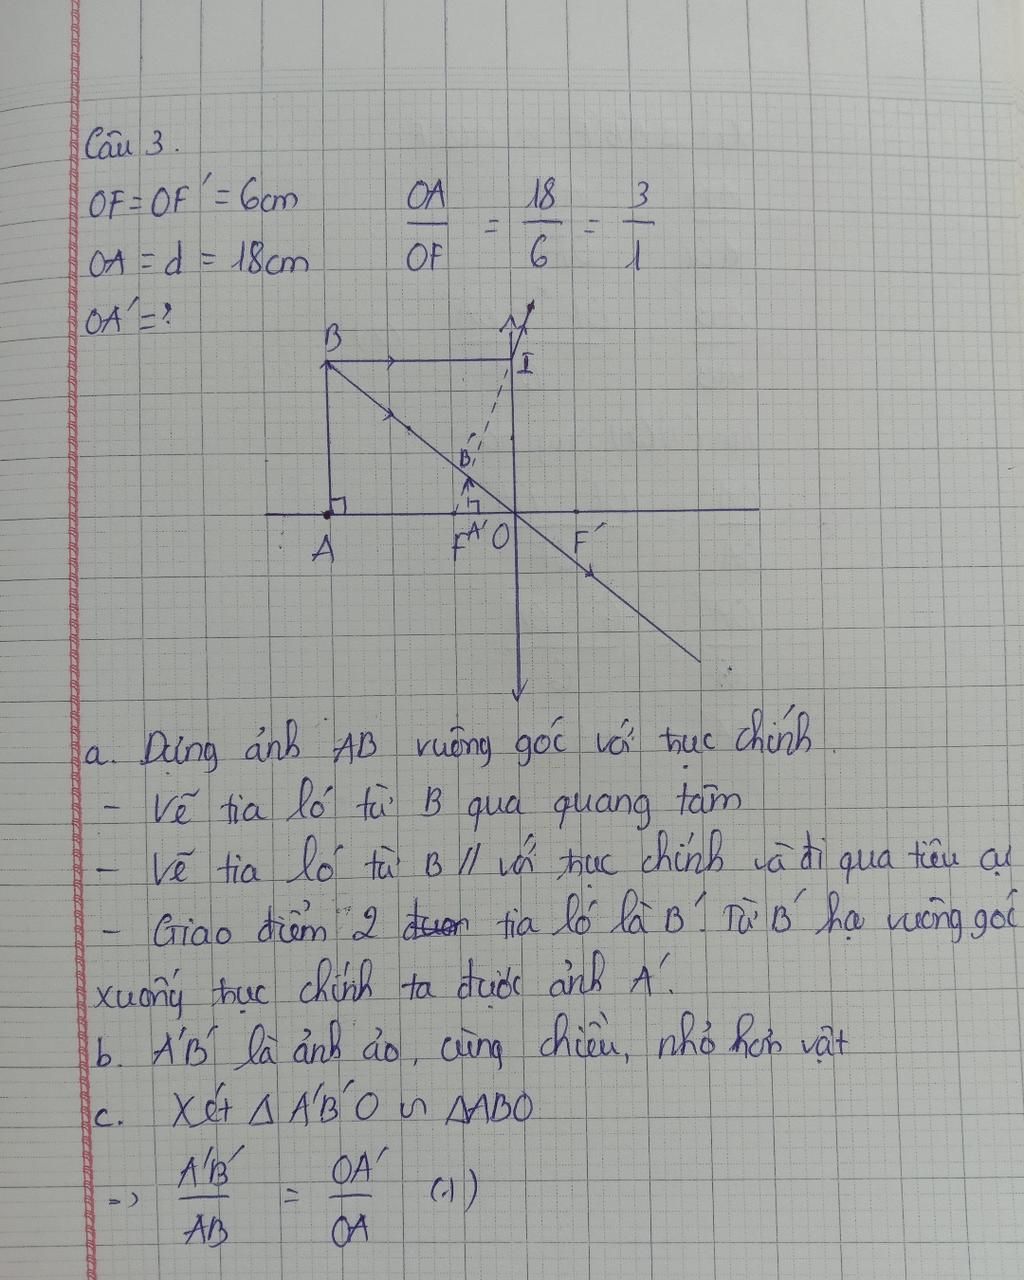 Câu 3.
OF = OF' = 6cm
OA = d = 18cm
OA' = ?
OA/OF = 18/6 = 3/1
B
I
B'
A
F
A'
O
F'
a. Dựng ảnh AB vuông góc với trục chính.
- Vẽ tia ló từ B qua quang tâm
- Vẽ tia ló từ B // với trục chính và đi qua tiêu cự
- Giao điểm 2 tia ló là B'. Từ B' hạ vuông góc
xuống trục chính ta được ảnh A'.
b. A'B' là ảnh ảo, cùng chiều, nhỏ hơn vật
c. Xét Δ A'B'O ∽ ΔABO
=> A'B'/AB = OA'/OA (1)